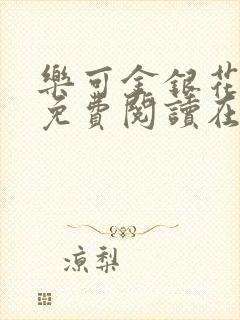 樂可金銀花
免費閱讀在
涼梨